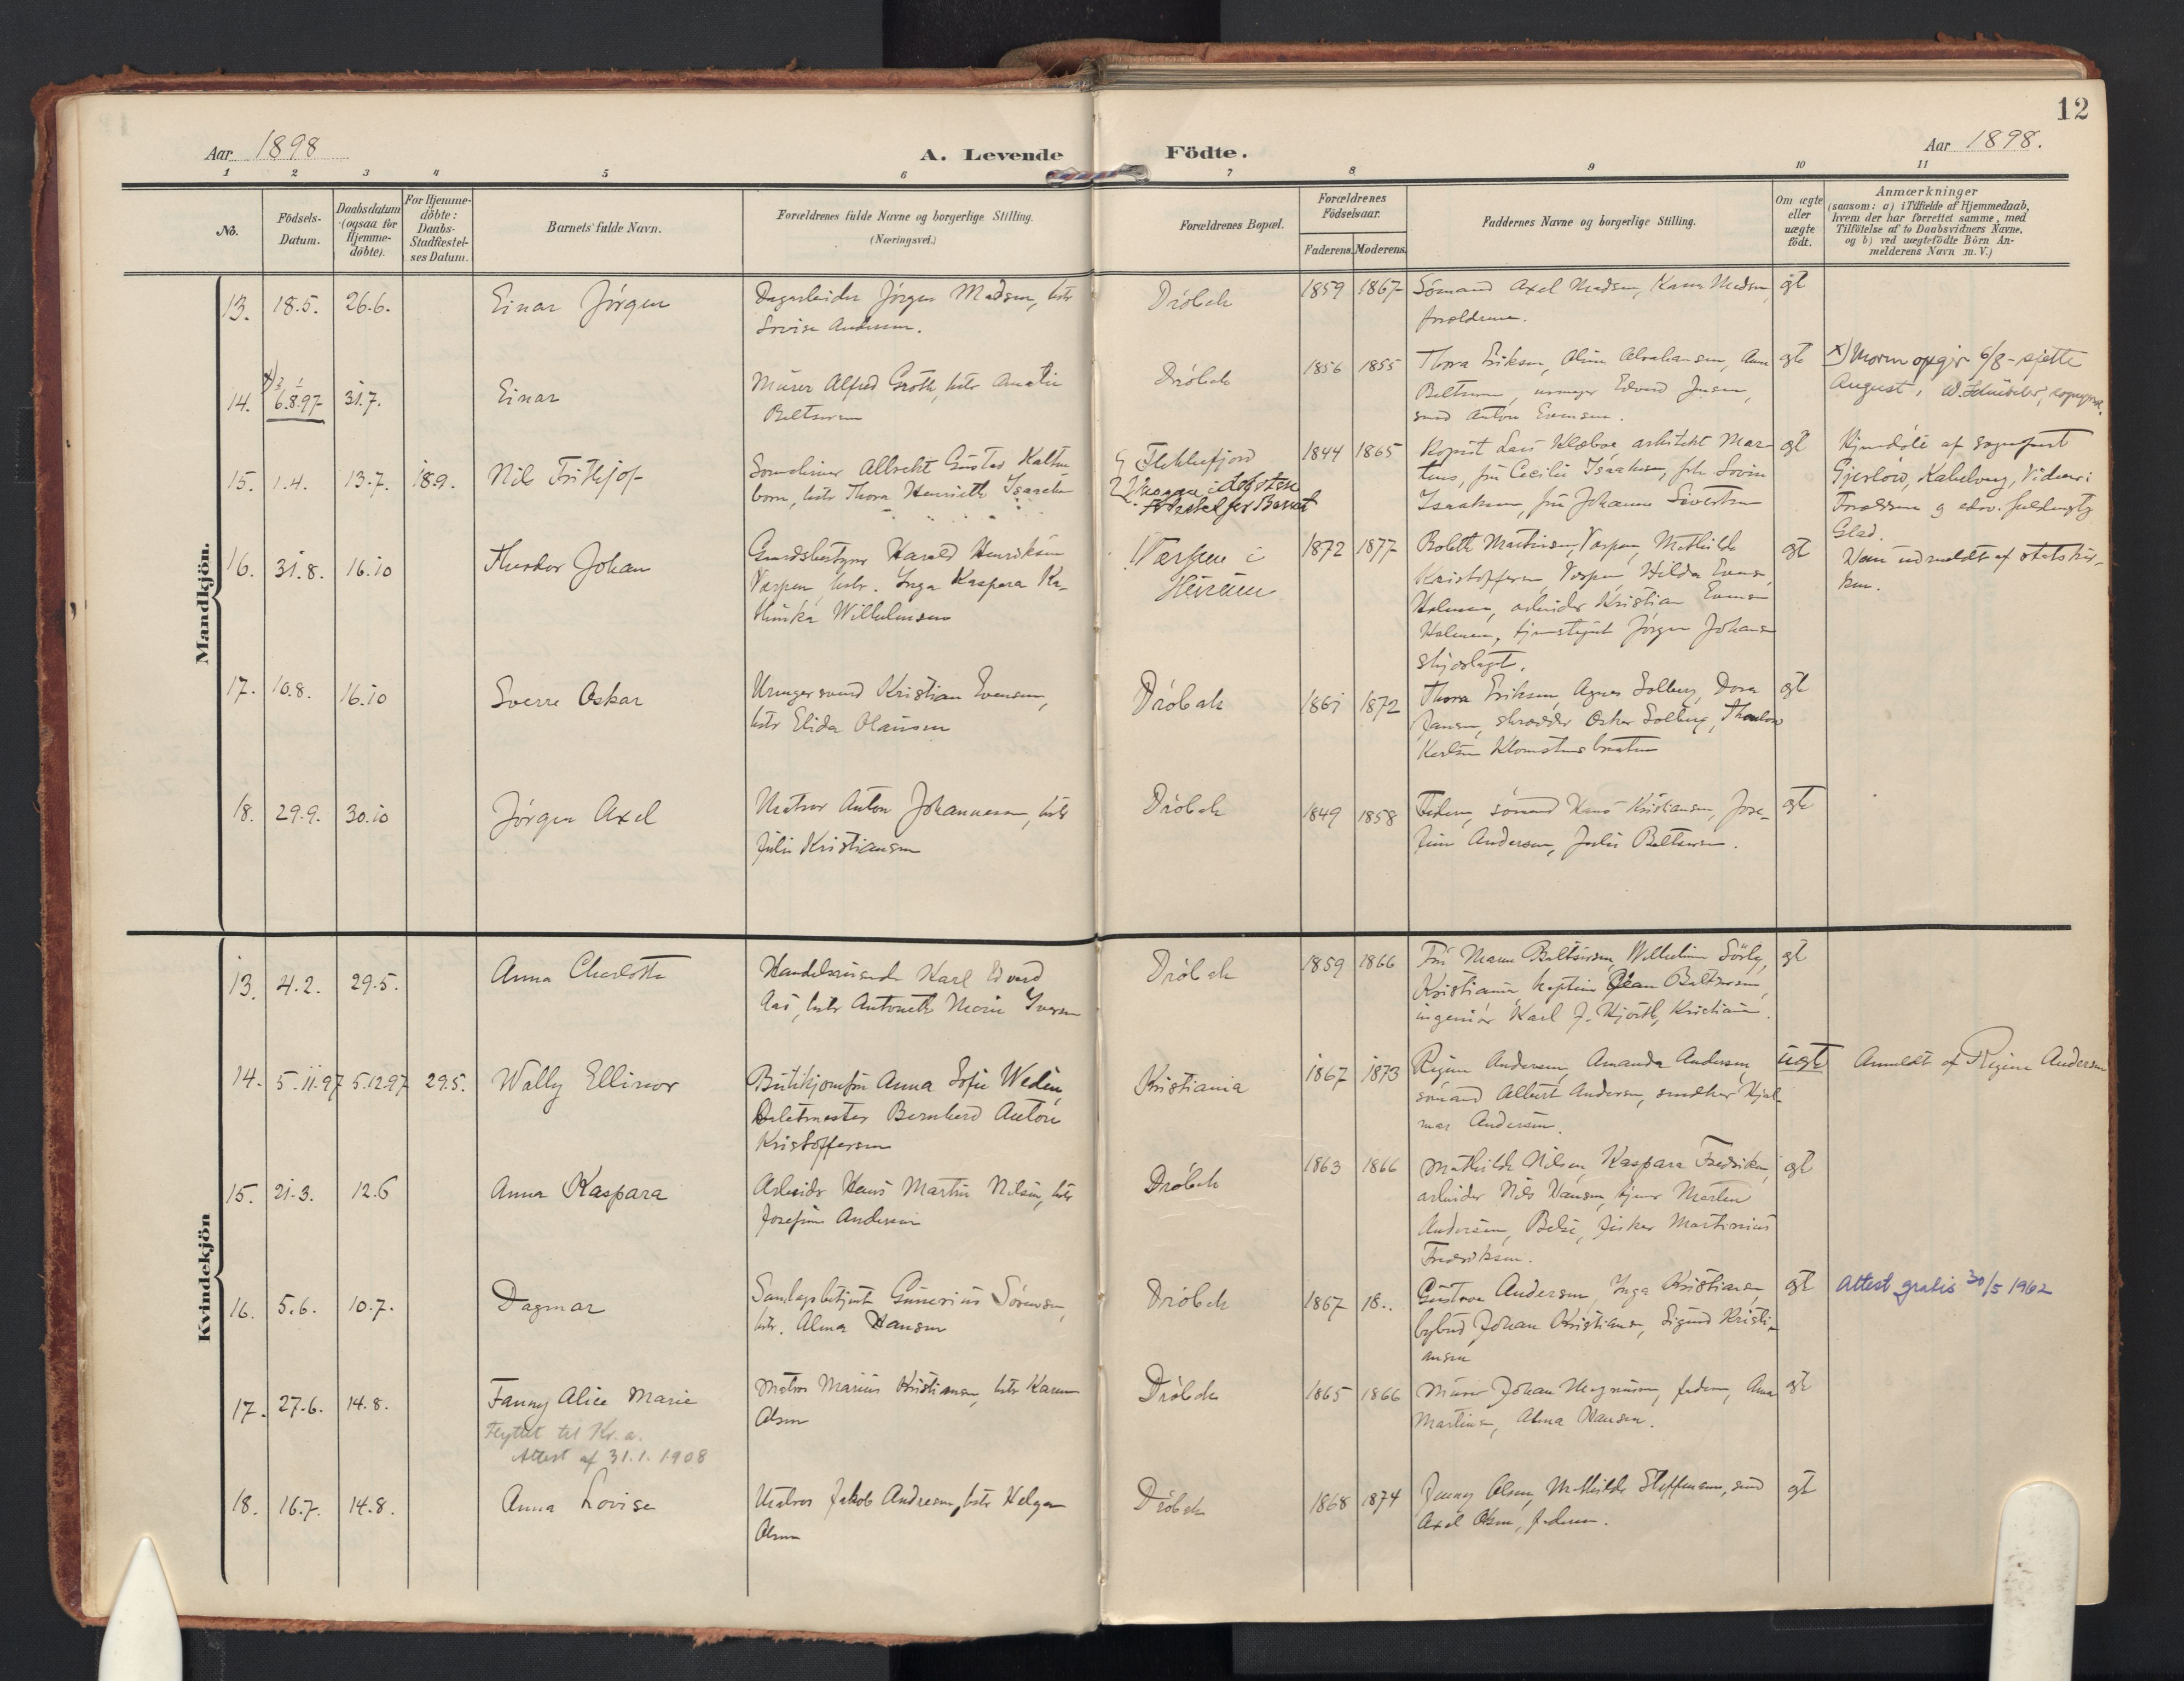 12
Aar 1898
A. Levende Födte.
Aar 1898.
1 2 3 4 5 6 7 8 9 10 11
No.
Födsels-Datum.
Daabsdatum (ogsaa for Hjemme-döbte).
For Hjemme-döbte: Daabs-Stadfæstel-ses Datum.
Barnets fulde Navn.
Forældrenes fulde Navne og borgerlige Stilling.
(Næringsvei.)
Forældrenes Bopæl.
Forældrenes Födselsaar.
Faderens. Moderens.
Faddernes Navne og borgerlige Stilling.
Om ægte eller uægte født.
Anmærkninger
(saasom: a) i Tilfælde af Hjemmedaab,
hvem der har forrettet samme, med
Tilföielse af to Daabsvidners Navne,
og b) ved uægtefödte Börn An-
melderens Navn m. V.)
Mandkjön.
13. 18.5. 26.6. Einar Jörgen
Dagarbeider Jörgen Madsen, hstr
Lovise Andersen.
Dröbak 1859 1867
Sömand Axel Madsen, Karen Madsen,
forældrene.
gt
14. 6.8.97 31.7. Einar
Murer Alfred Groth, hstr Amalie
Beltzersen
Dröbak 1856 1855
Thora Eriksen, Oline Abrahamsen, Anna
Beltzersen, urmager Edvard Jensen,
smed Anton Evensen.
gte
x) Moren opgir 6/8 - sjette
August,
15. 1.4. 13.7. 18.9. Nils Frithjof
Albrecht Gustav Kalten
born, hstr Thora Henriette Isaachsen
Flekkefjord
1844 1865
fru Cecilie Isaachsen, frk Lovise
Isaachsen, fru Johanne Sivertsen
gt
Hjemdöbt af sogneprest
Gjerlöw, Kabelvaag, Vidner:
Forældrene
16. 31.8. 16.10 Theodor Johan
Gaardsbestyrer Harald Henriksen
Vaspen, hstr. Inga Kaspara Ka-
thinka Wilhelmsen
Vaspen i
Hurum
1872 1877
Bolette Martinsen, Vaspen, Mathilde
Kristoffersen, Vaspen, Hilda Evensen,
Holmen, arbeider Kristian Evensen
Holmen, tjenstegut Jörgen Johansen
gt
Var udmeldt af statskir-
ken.
17. 10.8. 16.10 Sverre Oskar
Urmagersvend Kristian Evensen,
hstr Elida Olausen
Dröbak 1861 1872
Thora Eriksen, Agnes Solberg, Dora
Jansen, skrædder Oskar Solberg,
gte
18. 29.9. 30.10 Jörgen Axel
Matros Anton Johannesen, hstr
Julie Kristiansen
Dröbak 1849 1858
Faderen, sömand Hans Kristiansen, Jose-
fine Andersen, Julie Beltzersen.
gte
Kvindekjön
13. 4.2. 29.5. Anna Charlotte
Handelsreisende Karl Edvard
Aas, hstr Antonette Marie Iversen
Dröbak 1859 1866
Fru Maren Beltzersen, Wilhelmine Sörby,
Kristiania, kaptein Beltzersen,
ingeniör Karl J. Hjorth, Kristiania.
gt
14. 5.11.97 5.12.97 29.5. Wally Ellinor
Butikjomfru Anna Sofie Wedin,
Balletmester Bernhard Anton
Kristoffersen
Kristiania 1867 1873
Regine Andersen, Amanda Andersen,
sömand Albert Andersen, snedker Hjal-
mar Andersen.
uægte
Anmeldt af Regine Andersen
15. 21.3. 12.6 Anna Kaspara
Arbeider Hans Martin Nilsen, hstr
Josefine Andersen
Dröbak 1863 1866
Mathilde Nilsen, Kaspara Fredriksen,
arbeider Nils Hansen, tjener Martin
Andersen, fisker Martinius
Fredriksen.
gt
16. 5.6. 10.7. Dagmar
Samlagsbetjent Gunerius Sörensen,
hstr. Alma Hansen
Dröbak 1867 18..
Gustava Andersen, Inga Kristiansen,
bybud Johan Kristiansen, Sigurd Kristi-
ansen
gt
Attest gratis 30/5 1962
17. 27.6. 14.8. Fanny Alice Marie
Flyttet til Kr.a.
Attest af 31.1.1908
Matros Marius Kristiansen, hstr Karen
Olsen
Dröbak 1865 1866
Murer Johan Magnusen, faderen, Anna
Martinsen, Alma Hansen.
gt
18. 16.7. 14.8. Anna Lovise
Matros Jakob Andresen, hstr Helga
Olsen
Dröbak 1868 1874
Jenny Olsen, Mathilde Steffensen, smed
Axel Olsen, faderen.
gt